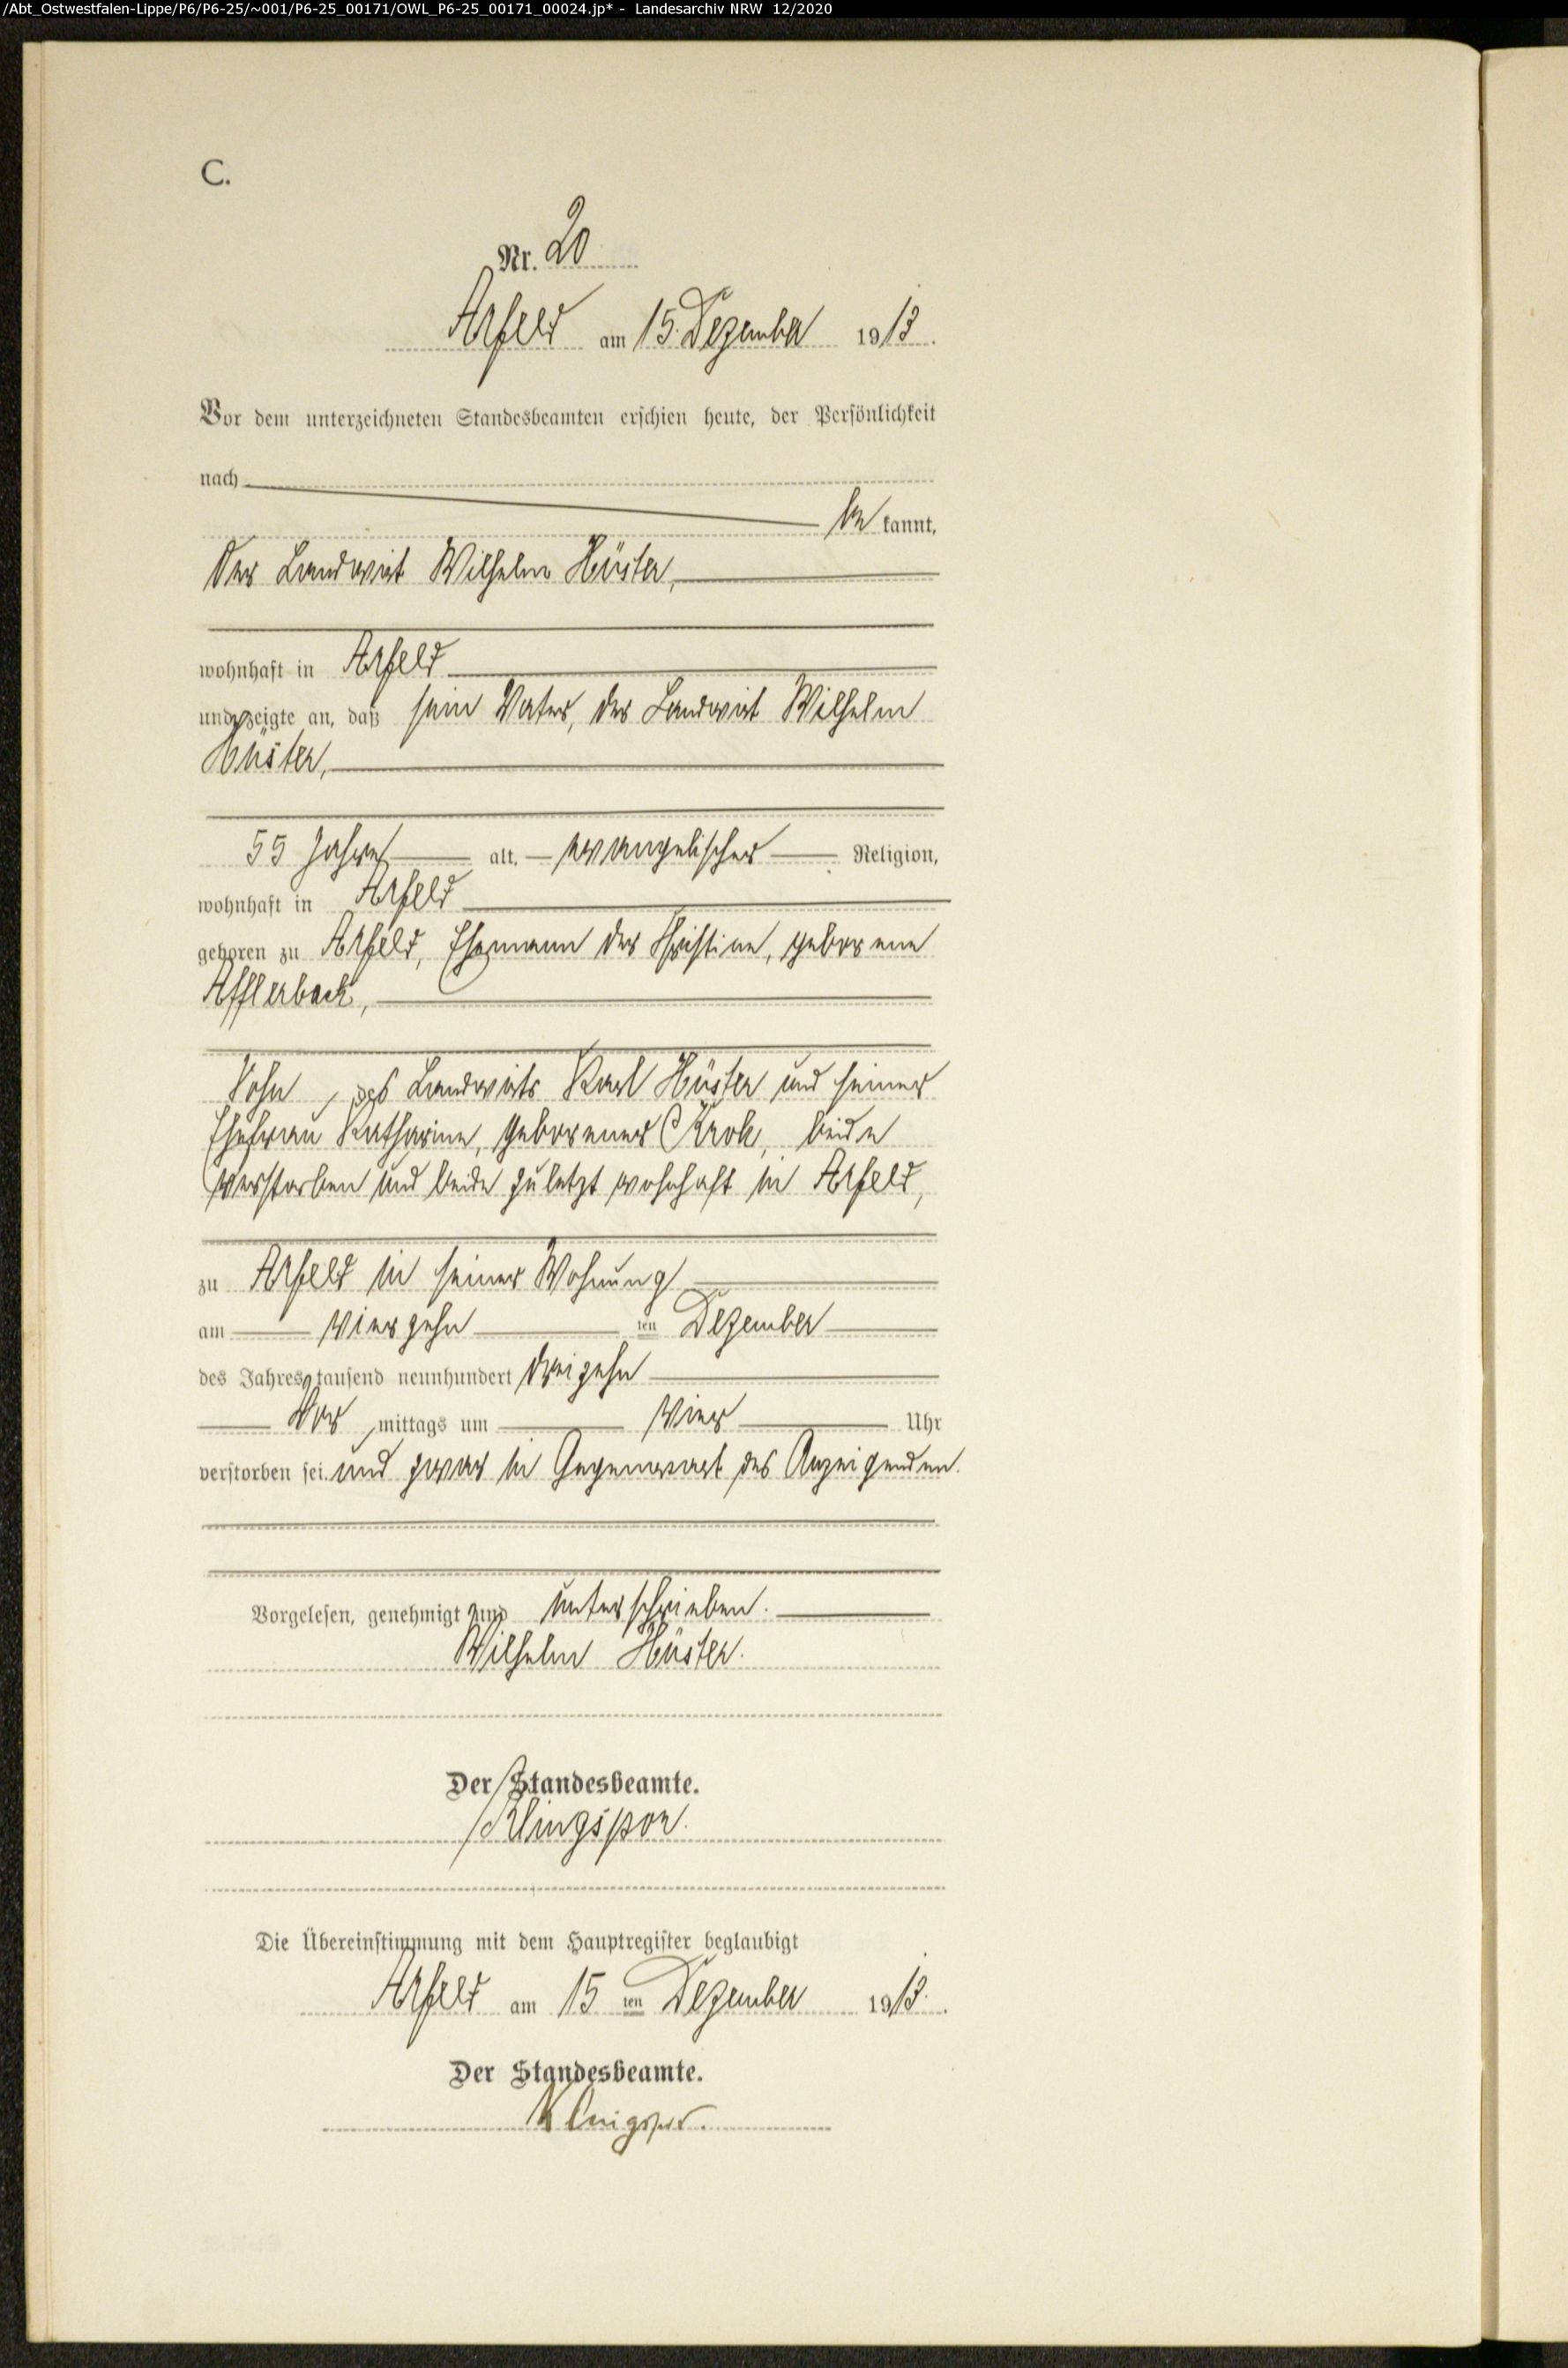 /Abt_Ostwestfalen-Lippe/P6/P6-25/~001/P6-25_00171/OWL_P6-25_00171_00024.jp* - Landesarchiv NRW 12/2020
C.
Nr. 20
Arfeld am 15. Dezember 1913.
Vor dem unterzeichneten Standesbeamten erschien heute, der Persönlichkeit
nach
be kannt,
der Landwirt Wilhelm Hüster,
wohnhaft in Arfeld
und zeigte an, daß sein Vater, der Landwirt Wilhelm
Hüster,
55 Jahre alt, evangelischer Religion,
wohnhaft in Arfeld
geboren zu Arfeld, Ehemann der Christine, geborene
Afflerbach,
Sohn des Landwirts Karl Hüster und seiner
Ehefrau Katharine, geborener Kroh, beide
verstorben und beide zuletzt wohnhaft in Arfeld,
zu Arfeld in seiner Wohnung
am vierzehn ten Dezember
des Jahres tausend neunhundert dreizehn
Vor mittags um vier Uhr
verstorben sei und zwar in Gegenwart des Anzeigenden.
Vorgelesen, genehmigt und unterschrieben.
Wilhelm Hüster.
Der Standesbeamte.
Klingspor.
Die Übereinstimmung mit dem Hauptregister beglaubigt
Arfeld am 15 ten Dezember 1913.
Der Standesbeamte.
Klingspor.